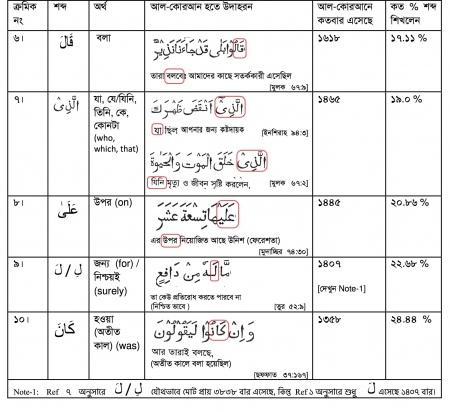 ক্রমিক নং শব্দ অর্থ আল-কোরআন হতে উদাহরন আল-কোরআনে কতবার এসেছে কত % শব্দ শিখলেন
৬। قَالَ বলা قَالُوا بَلَىٰ قَدْ جَاءَنَا نَذِيرٌ ১৬১৮ ১৭.১১ %
তারা বলবেঃ আমাদের কাছে সতর্ককারী এসেছিল
[মুলক ৬৭:৯]
৭। الَّذِىْ যা, যে/যিনি, তিনি, কে, কোনটা (who, which, that) الَّذِىْ أَنْقَضَ ظَهْرَكَ ১৪৬৫ ১৯.০ %
যা ছিল আপনার জন্য কষ্টদায়ক [ইনশিরাহ ৯৪:৩]
الَّذِىْ خَلَقَ الْمَوْتَ وَالْحَيٰوةَ
যিনি মৃত্যু ও জীবন সৃষ্টি করলেন, [মুলক ৬৭:২]
৮। عَلَىٰ উপর (on) عَلَيْهَا تِسْعَةَ عَشَرَ ১৪৪৫ ২০.৮৬ %
এর উপর নিয়োজিত আছে উনিশ (ফেরেশতা)
[মুদাচ্ছির ৭৪:৩০]
৯। لِ/لَ জন্য (for) / নিশ্চয়ই (surely) مَّا لَهُ مِنْ دَافِعٍ ১৪০৭ ২২.৬৮ %
[দেখুন Note-1]
তা কেউ প্রতিরোধ করতে পারবে না
(নিশ্চিত ভাবে ) [তুর ৫২:৯]
১০। كَانَ হওয়া (অতীত কাল) (was) وَإِنْ كَانُوْا لَيَقُوْلُوْنَ ১৩৫৮ ২৪.৪৪ %
আর তারাই বলছে,
(অতীত কালে বলা হয়েছিল)
[ছফফাত ৩৭:১৬৭]
Note-1: Ref ৭ অনুসারে لِ/لَ (যৌথভাবে মোট প্রায় ৩৮৩৮ বার এসেছে, কিন্তু Ref ১ অনুসারে শুধু لَ এসেছে ১৪০৭ বার।